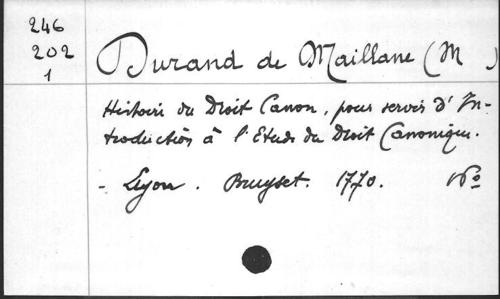 246
202
1
Durand de Maillane (M )
Histoire du Droit Canon, pour servir d'In-
troduction à l'Etude du Droit Canonique.
- Lyon. Bruyset. 1770. 16o